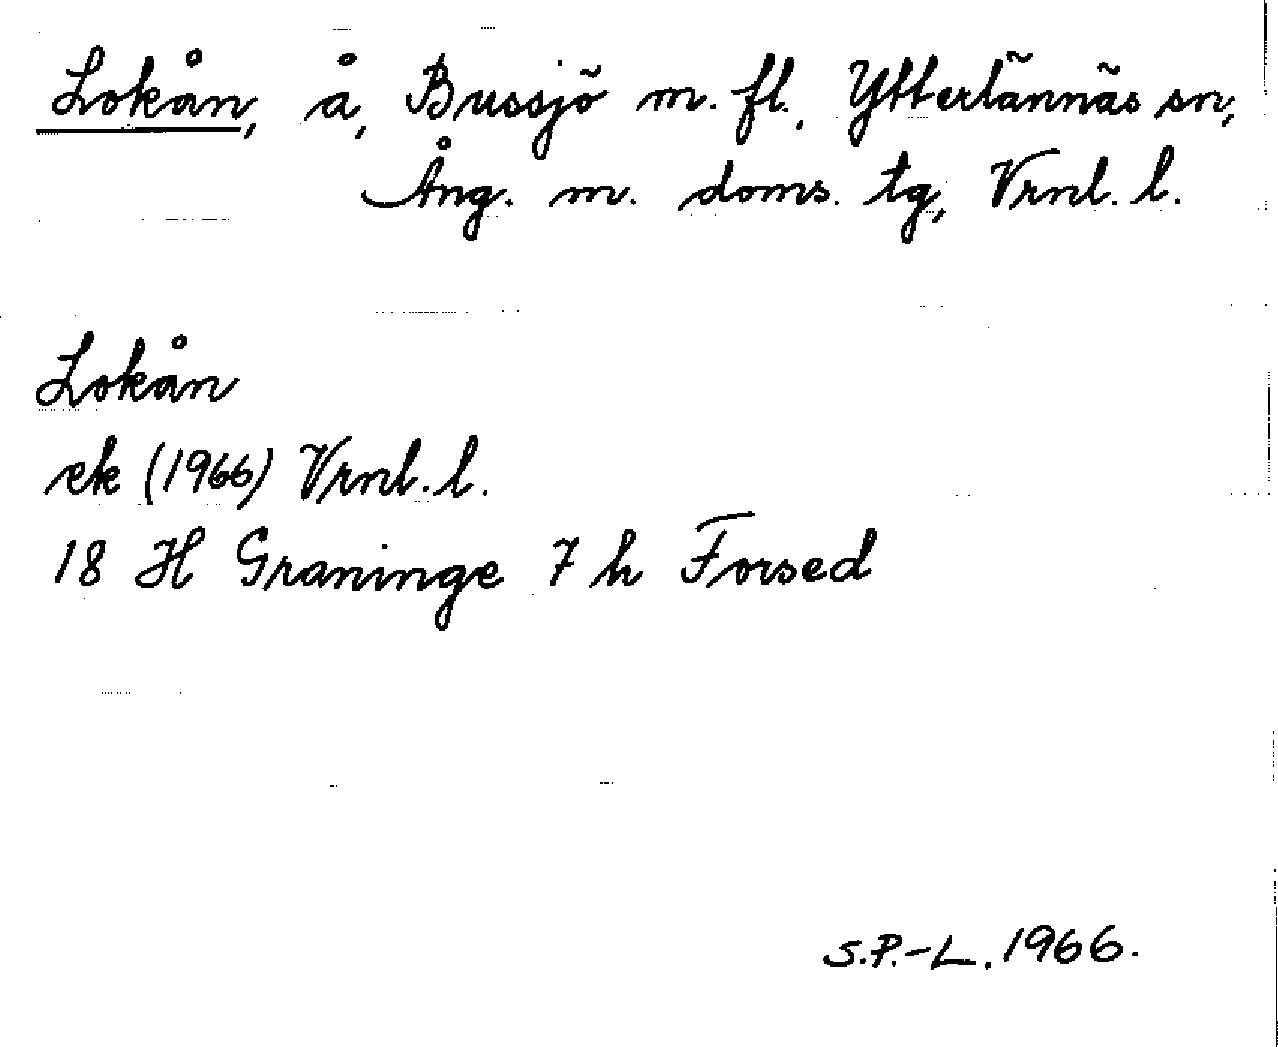 Lokån, å, Bussjö m. fl. Ytterlännäs sn,
Ång. m. doms. tg, Vrnl. l.
Lokån
ek (1966) Vrnl. l.
18 H Graninge 7 h Forsed
S.P.-L. 1966.